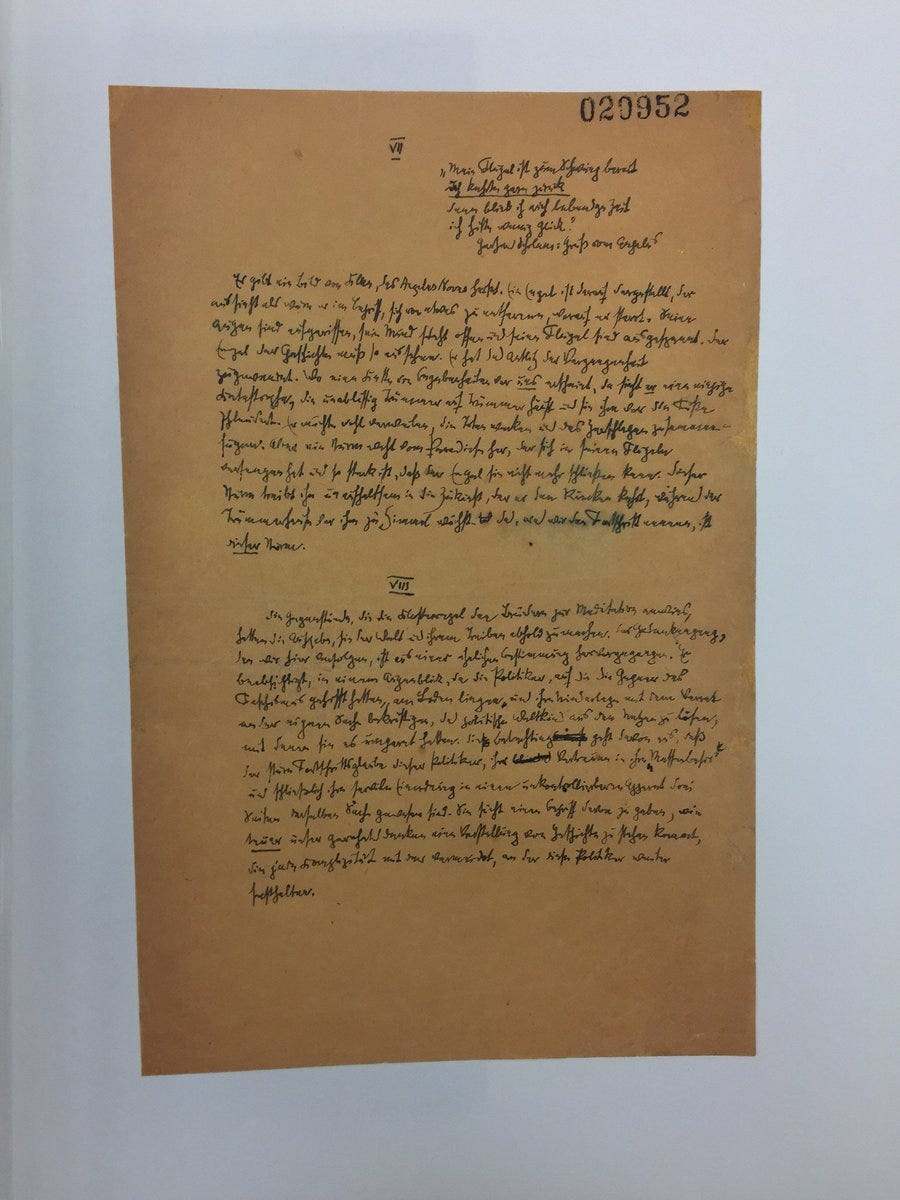 020952
VII
„Mein Flügel ist zum Schwung bereit
ich kehrte gern zurück
denn blieb ich auch lebendge Zeit
ich hätte wenig Glück."
Gerhard Scholem: Gruß vom Angelus
Es gibt ein Bild von Klee, das Angelus Novus heißt. Ein Engel ist darauf dargestellt, der
aussieht als wäre er im Begriff, sich von etwas zu entfernen, worauf er starrt. Seine
Augen sind aufgerissen, sein Mund steht offen und seine Flügel sind ausgespannt. Der
Engel der Geschichte muß so aussehen. Er hat das Antlitz der Vergangenheit
zugewendet. Wo eine Kette von Begebenheiten vor uns erscheint, da sieht er eine einzige
Katastrophe, die unablässig Trümmer auf Trümmer häuft und sie ihm vor die Füße
schleudert. Er möchte wohl verweilen, die Toten wecken und das Zerschlagene zusammen-
fügen. Aber ein Sturm weht vom Paradiese her, der sich in seinen Flügeln
verfangen hat und so stark ist, daß der Engel sie nicht mehr schließen kann. Dieser
Sturm treibt ihn unaufhaltsam in die Zukunft, der er den Rücken kehrt, während der
Trümmerhaufe vor ihm zum Himmel wächst. Das, was wir den Fortschritt nennen, ist
dieser Sturm.
VIII
Die Gegenstände, die die Klosterregel den Brüdern zur Meditation anwies,
hatten die Aufgabe, sie der Welt und ihrem Treiben abhold zu machen. Der Gedankengang,
den wir hier verfolgen, ist aus einer ähnlichen Bestimmung hervorgegangen. Er
beabsichtigt, in einem Augenblick, da die Politiker, auf die die Gegner des
Faschismus gehofft hatten, am Boden liegen, und ihre Niederlage mit dem Verrat
an der eigenen Sache bekräftigen, das politische Weltkind aus den Netzen zu lösen,
mit denen sie es umgarnt hatten. Die Betrachtung geht davon aus, daß
der sture Fortschrittsglaube dieser Politiker, ihr Vertrauen in ihre „Massenbasis"
und schließlich ihre servile Einordnung in einen unkontrollierbaren Apparat drei
Seiten derselben Sache gewesen sind. Sie sucht einen Begriff davon zu geben, wie
teuer unser gewohntes Denken eine Vorstellung von Geschichte zu stehen kommt,
die jede Komplizität mit der vermeidet, an der diese Politiker weiter
festhalten.